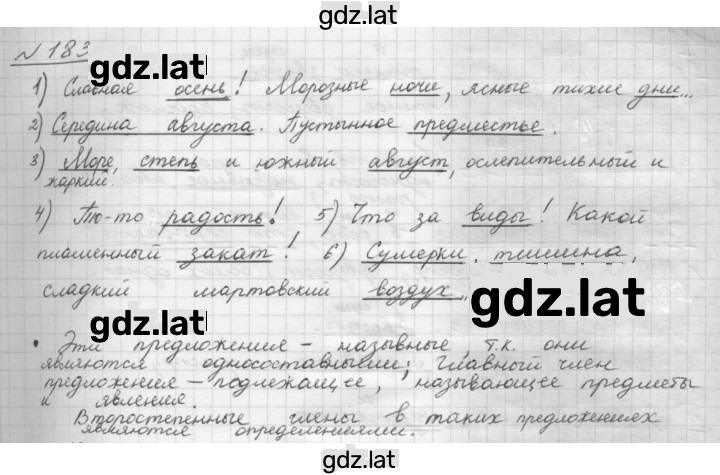 gdz.lat
№183
gdz.lat
1) Славная осень! Морозные ночи, ясные тихие дни...
2) Середина августа. Пустынное предместье.
3) Море, степь и южный август, ослепительный и
жаркий.
4) То-то радость! 5) Что за виды! Какой
пламенный закат! 6) Сумерки, тишина,
сладкий мартовский воздух...
gdz.lat
gdz.lat
• Эти предложения – назывные, т.к. они
являются односоставными; Главный член
предложения – подлежащее, называющее предметы
и явления.
Второстепенные члены в таких предложениях
являются определениями.
gdz.lat